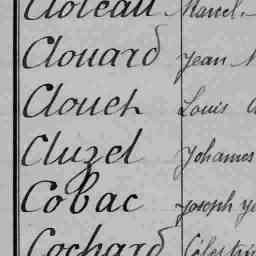 Cloteau Marcel
Clouard Jean
Clouet Louis
Cluzel Johannes
Cobac Joseph
Cochard Célestin